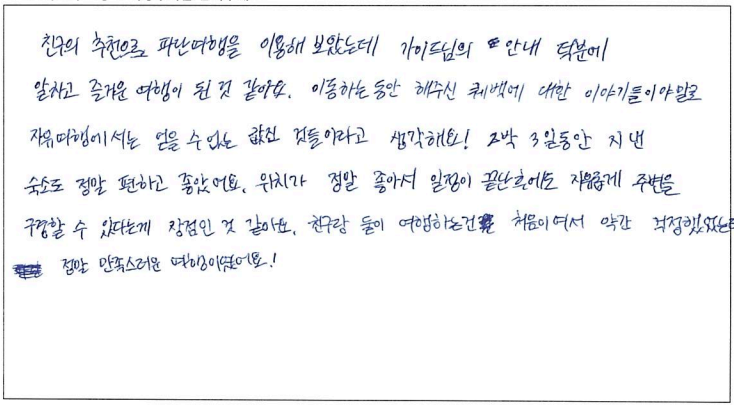 친구의 추천으로 파란여행을 이용해 보았는데 가이드님의 안내 덕분에
알차고 즐거운 여행이 된 것 같아요. 이동하는 동안 해주신 퀘백에 대한 이야기들이야말로
자유여행에서는 얻을 수 없는 값진 것들이라고 생각해요! 2박 3일동안 지낸
숙소도 정말 편하고 좋았어요. 위치가 정말 좋아서 일정이 끝난후에도 자유롭게 주변을
구경할 수 있다는게 장점인 것 같아요. 친구랑 둘이 여행하는건 처음이여서 약간 걱정했었는데
정말 만족스러운 여행이였어요!